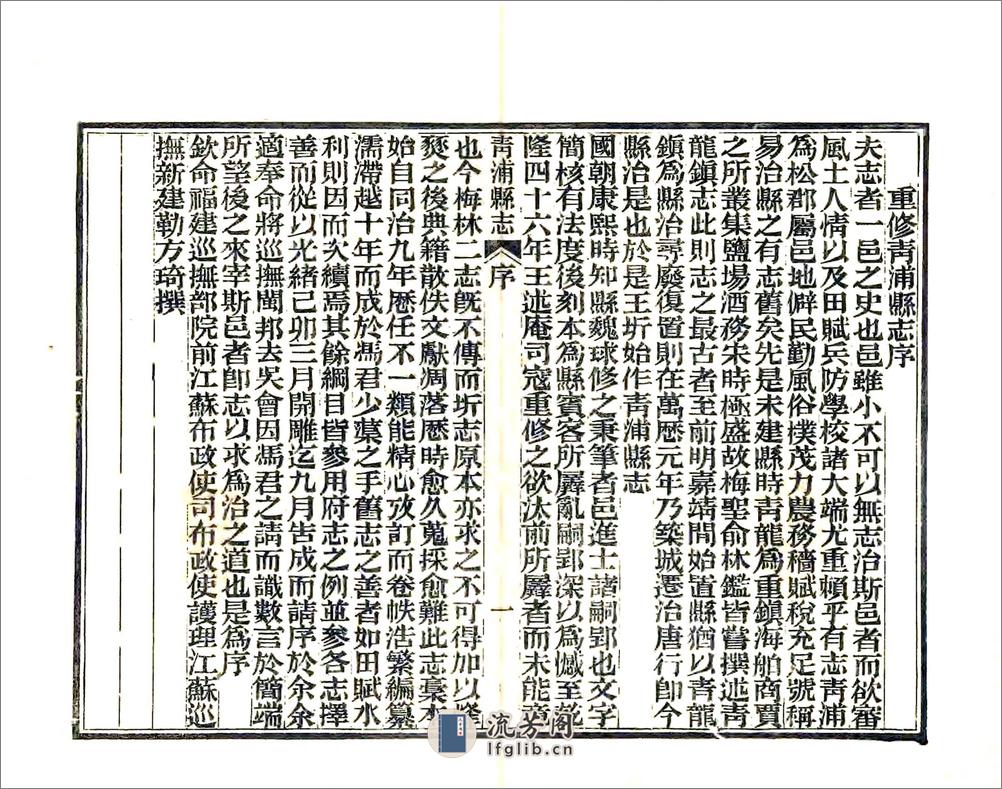 重修青浦縣志序
夫志者一邑之史也邑雖小不可以無志治斯邑者而欲審
風土人情以及田賦兵防學校諸大端尤重賴乎有志青浦
為松郡屬邑地僻民勤風俗樸茂力農務穡賦稅充足號稱
易治縣之有志舊矣先是未建縣時青龍為重鎮海舶商賈
之所叢集鹽場酒務宋時極盛故梅聖俞林鑑皆嘗撰述青
龍鎮志此則志之最古者至前明嘉靖間始置縣猶以青龍
鎮為縣治尋廢復置則在萬歷元年乃築城遷治唐行卽今
縣治是也於是王圻始作青浦縣志
國朝康熙時知縣魏球修之秉筆者邑進士諸嗣郢也文字
簡核有法度後刻本為縣賓客所羼亂嗣郢深以為憾至乾
隆四十六年王述庵司寇重修之欲汰前所羼者而未能竟
青浦縣志 序 一
也今梅林二志旣不傳而圻志原本亦求之不可得加以
燹之後典籍散佚文獻凋落歷時愈久蒐採愈難此志藁本
始自同治九年歷任不一類能精心攷訂而卷帙浩繁編纂
濡滯越十年而成於馮君少蕖之手舊志之善者如田賦水
利則因而次續焉其餘綱目皆參用府志之例並參各志擇
善而從以光緒己卯三月開雕迄九月告成而請序於余余
適奉命將巡撫閩邦去吳會因馮君之請而識數言於簡端
所望後之來宰斯邑者卽志以求為治之道也是為序
欽命福建巡撫部院前江蘇布政使司布政使護理江蘇巡
撫新建勒方琦撰
流芳阁
lfglib.cn